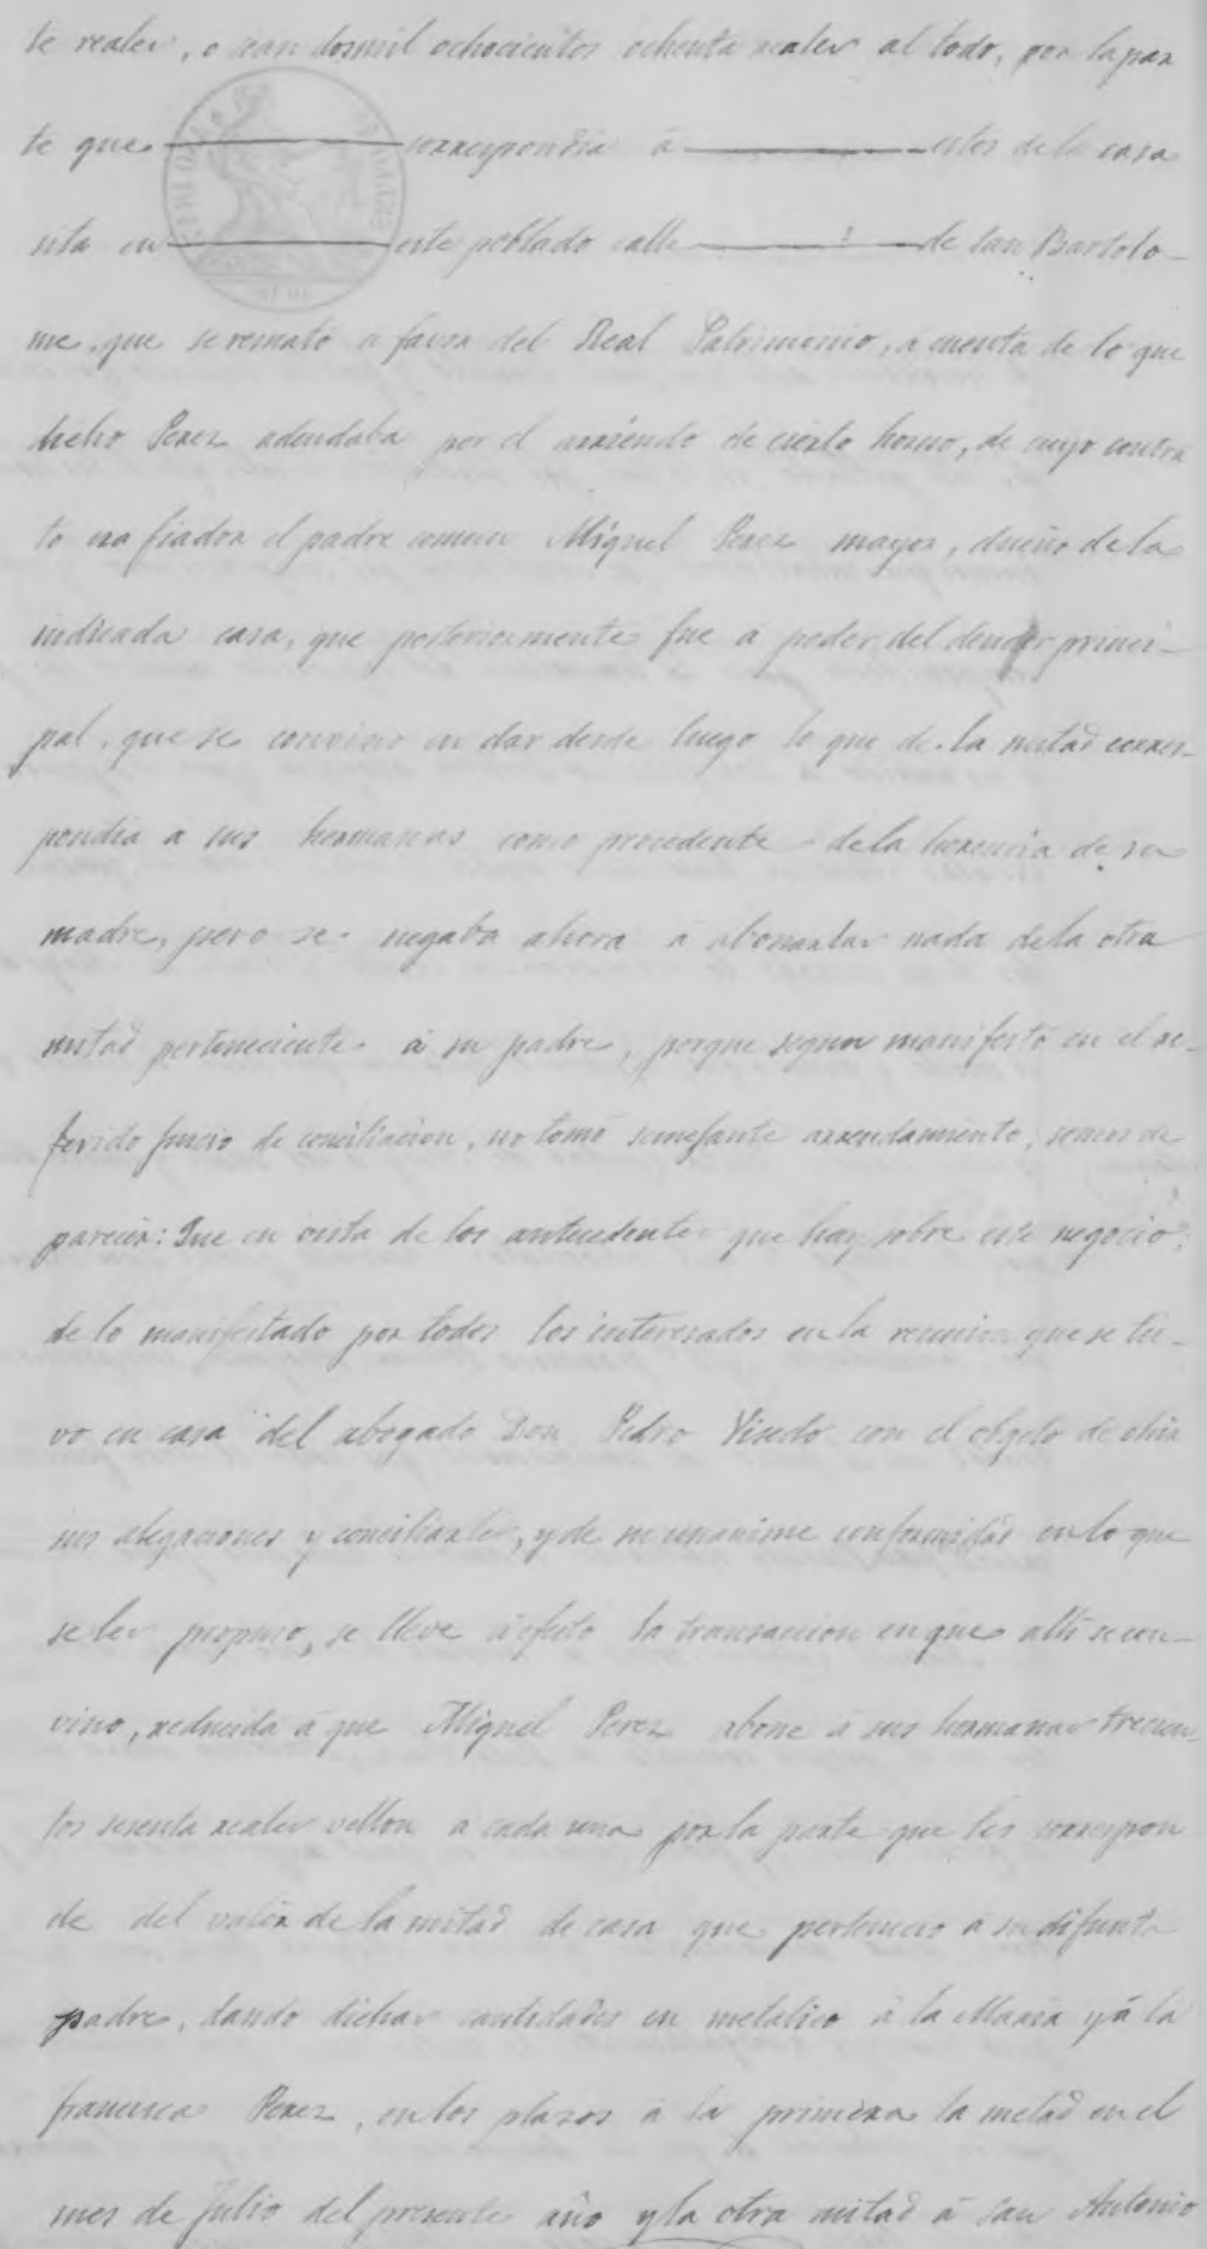 te reales, o sean dosmil ochocientos ochenta reales al todo, por la par
te que correspondia á estos de la casa
sita en este poblado calle de San Bartolo-
me, que se remató a favor del Real Patrimonio, a cuenta de lo que
dicho Perez adeudaba por el arriendo de cierto horno, de cuyo contra
to era fiador el padre comun Miguel Perez mayor, dueño de la
indicada casa, que posteriormente fue a poder del deudor princi-
pal, que se convino en dar desde luego lo que de la mitad corres-
pondia a sus hermanas como procedente de la herencia de su
madre, pero se negaba ahora a abonarlas nada de la otra
mitad perteneciente a su padre, porque segun manifestó en el re-
ferido juicio de conciliacion, no tomó semejante arrendamiento; somos de
parecer: Que en vista de los antecedentes que hay sobre este negocio,
de lo manifestado por todos los interesados en la reunion que se tu-
vo en casa del abogado Don Pedro Visedo con el objeto de ohir
sus alegaciones y conciliarles, y de su unanime conformidad en lo que
se les propuso, se lleve á efecto la transaccion en que alli se con-
vino, reducida á que Miguel Perez abone á sus hermanas trecien-
tos sesenta reales vellon a cada una por la parte que les correspon
de del valor de la mitad de casa que pertenecio a su difunto
padre, dando dichas cantidades en metalico á la Maria y á la
francisca Perez, en los plazos a la primera la metad en el
mes de Julio del presente año y la otra mitad á San Antonio